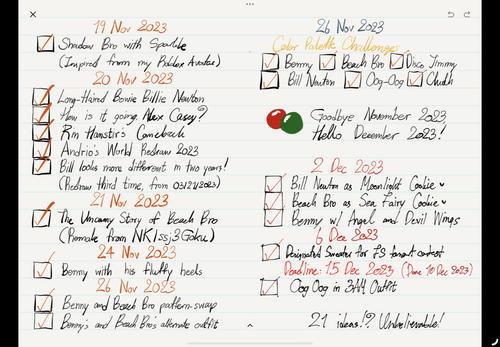 19 Nov 2023
Shadow Bro with Sparkle
(Inspired from my Roblox Avatar)
20 Nov 2023
Long-Haired Bowie Billie Newton
How is it going, Alex Casey?
Rin Hamstir's Comeback
Andrio's World Redraw 2023
Bill looks more different in two years!
(Redraw third time, from 03/21/2023)
21 Nov 2023
The Uncanny Story of Beach Bro
(Remake from NK1ssj3Goku)
24 Nov 2023
Benny with his fluffy heels
26 Nov 2023
Benny and Beach Bro pattern swap
Benny's and Beach Bro's alternate outfit
26 Nov 2023
Color Palette Challenges
Benny Beach Bro Disco Jimmy
Bill Newton Oog-Oog
Goodbye November 2023
Hello December 2023!
2 Dec 2023
Bill Newton as Moonlight Cookie ♥
Beach Bro as Sea Fairy Cookie ♥
Benny w/ Angel and Devil Wings
6 Dec 2023
Designated Sweater for contest
Deadline: 15 Dec 2023 (Done 10 Dec 2023)
Oog Oog in Outfit
21 ideas!? Unbelievable!